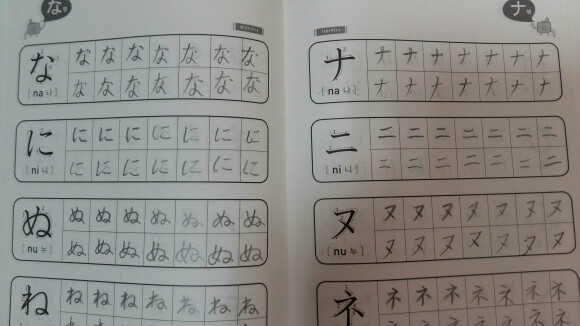 な행
な な な な な な な な
[na 나] な な な な な な な
に に に に に に に に
[ni 니] に に に に に に に
ぬ ぬ ぬ ぬ ぬ ぬ ぬ ぬ
[nu 누] ぬ ぬ ぬ ぬ ぬ ぬ ぬ
ね ね ね ね ね ね ね ね
ナ행
ナ ナ ナ ナ ナ ナ ナ ナ
[na 나] ナ ナ ナ ナ ナ ナ ナ
ニ ニ ニ ニ ニ ニ ニ ニ
[ni 니] ニ ニ ニ ニ ニ ニ ニ
ヌ ヌ ヌ ヌ ヌ ヌ ヌ ヌ
[nu 누] ヌ ヌ ヌ ヌ ヌ ヌ ヌ
ネ ネ ネ ネ ネ ネ ネ ネ